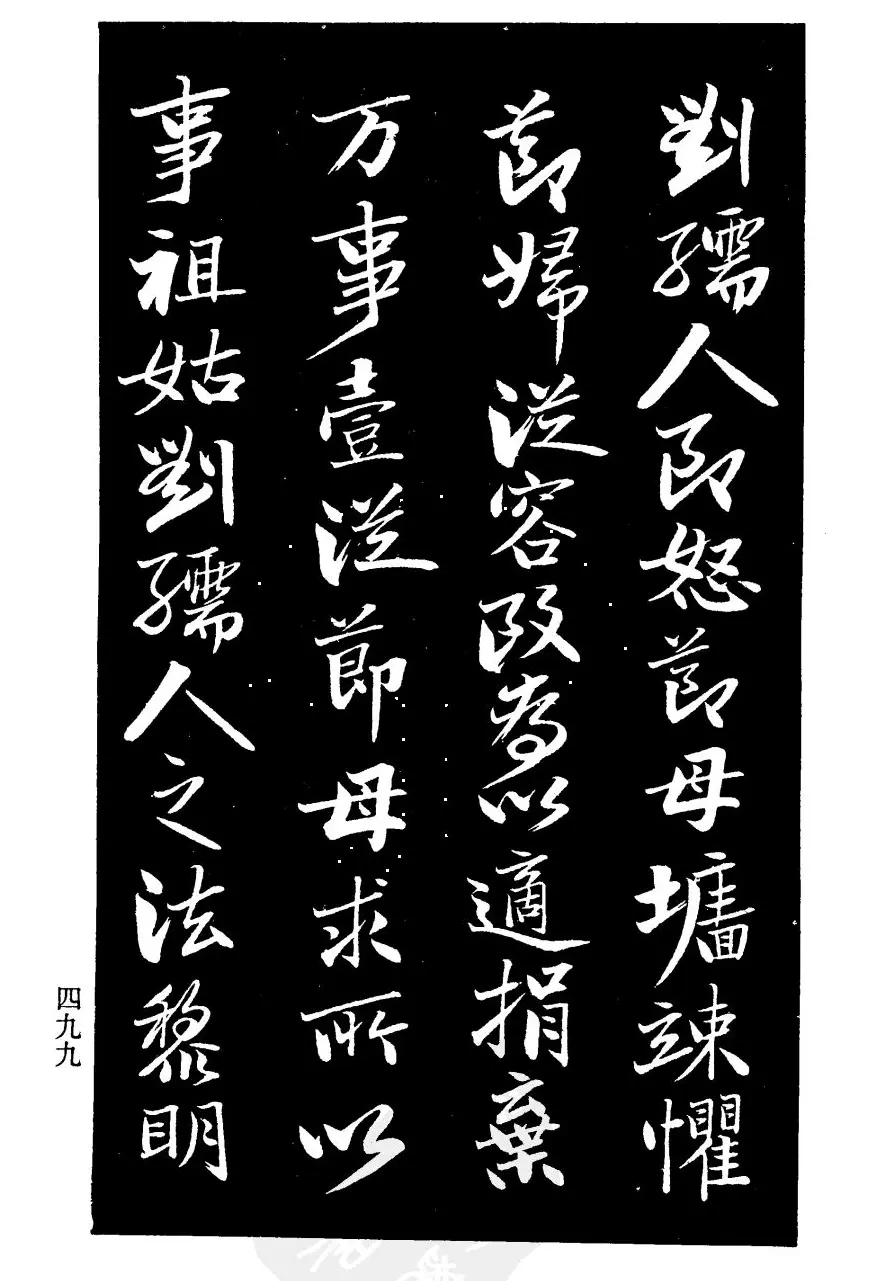 劉孺人即怒節母墻竦懼
節婦從容改為以適捐棄
万事壹從節母求所以
事祖姑劉孺人之法黎明
四九九